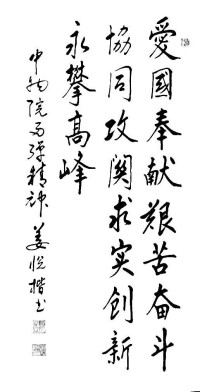 愛國奉献艱苦奋斗
協同攻関求实创新
永攀高峰
中物院两弹精神 姜悦楷书